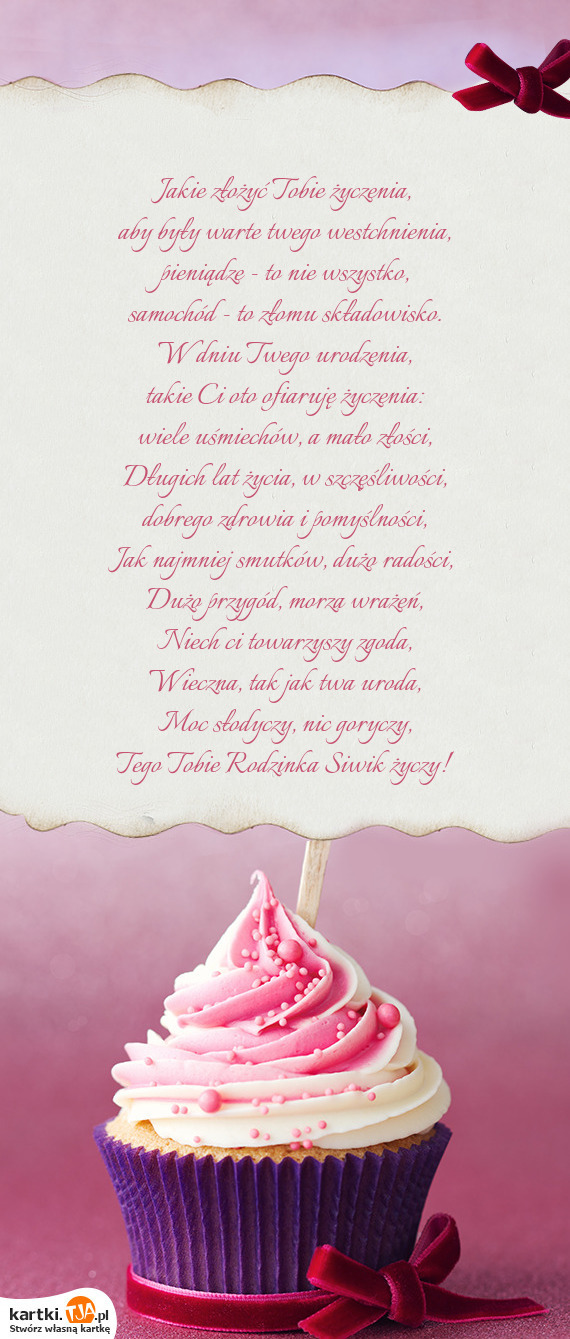 Jakie złożyć Tobie życzenia,
aby były warte twego westchnienia,
pieniądze - to nie wszystko,
samochód - to złomu składowisko.
W dniu Twego urodzenia,
takie Ci oto ofiaruję życzenia:
wiele uśmiechów, a mało złości,
Długich lat życia, w szczęśliwości,
dobrego zdrowia i pomyślności,
Jak najmniej smutków, dużo radości,
Dużo przygód, morza wrażeń,
Niech ci towarzyszy zgoda,
Wieczna, tak jak twa uroda,
Moc słodyczy, nic goryczy,
Tego Tobie Rodzinka Siwik życzy!
kartki.TJA.pl
Stwórz własną kartkę